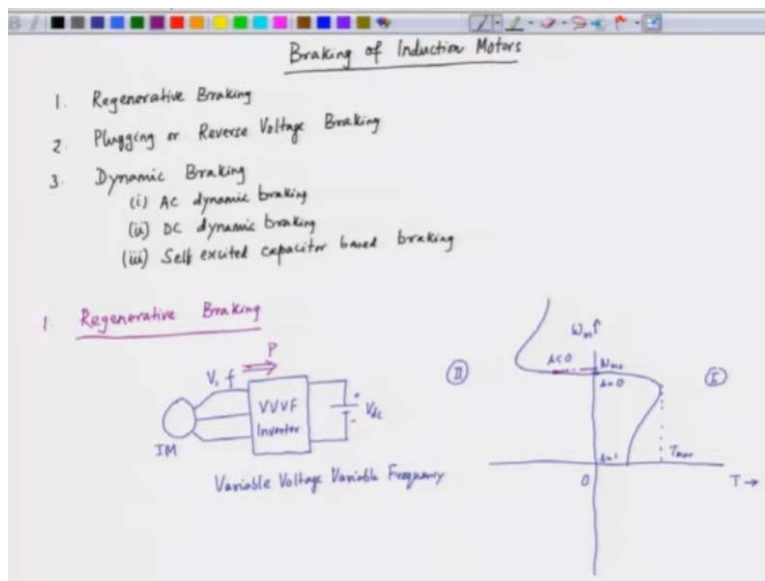 Braking of Induction Motors
1. Regenerative Braking
2. Plugging or Reverse Voltage Braking
3. Dynamic Braking
(i) AC dynamic braking
(ii) DC dynamic braking
(iii) Self excited capacitor based braking
1. Regenerative Braking
P
V, f
VVVF
Inverter
+
Vdc
-
IM
Variable Voltage Variable Frequency
ωm↑
II
s<0
s=0
I
s=1
Tmax
0
T→